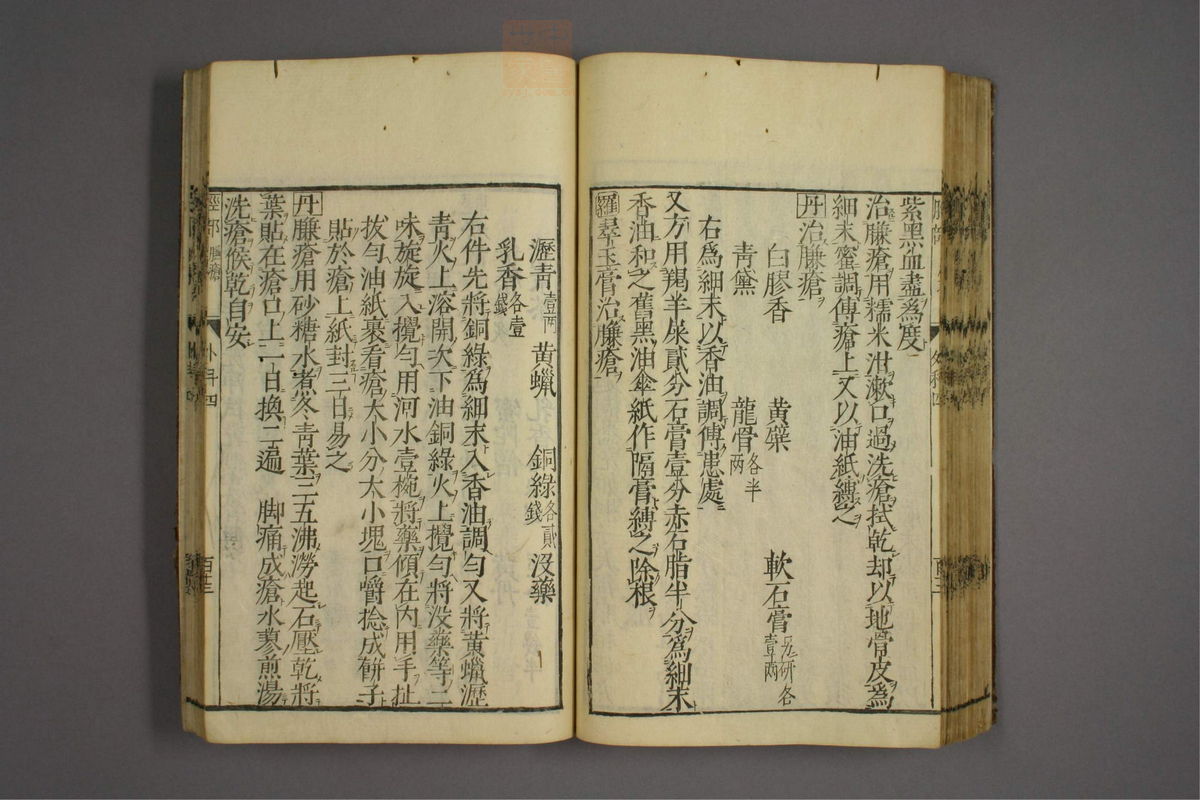 紫黑血盡為度
治臁瘡用糯米泔漱口過洗瘡拭乾却以地骨皮為
細末蜜調傅瘡上又以油紙縛之
丹治臁瘡
白膠香 黃蘗 軟石膏另研各壹兩
青黛 龍骨各半兩
右為細末以香油調傅患處
又方用羯羊屎貳分石膏壹分赤石脂半分為細末
香油和之舊黑油傘紙作隔膏縛之除根
羅翠玉膏治臁瘡
瀝青壹兩 黃蠟 銅綠各貳錢 沒藥
乳香各壹錢
右件先將銅綠為細末入香油調勻又將黃蠟瀝
青火上溶開次下油銅綠火上攪勻將沒藥等二
味旋旋入攪勻用河水壹椀將藥傾在內用手扯
拔勻油紙裹看瘡大小分大小塊口嚼捻成餅子
貼於瘡上紙封三日易之
丹臁瘡用砂糖水煮冬青葉三五沸澇起石壓乾將
葉貼在瘡口上一日換二遍 脚痛成瘡水蓼煎湯
洗瘡候乾自安
脛部 臁瘡 外科四 百廿三